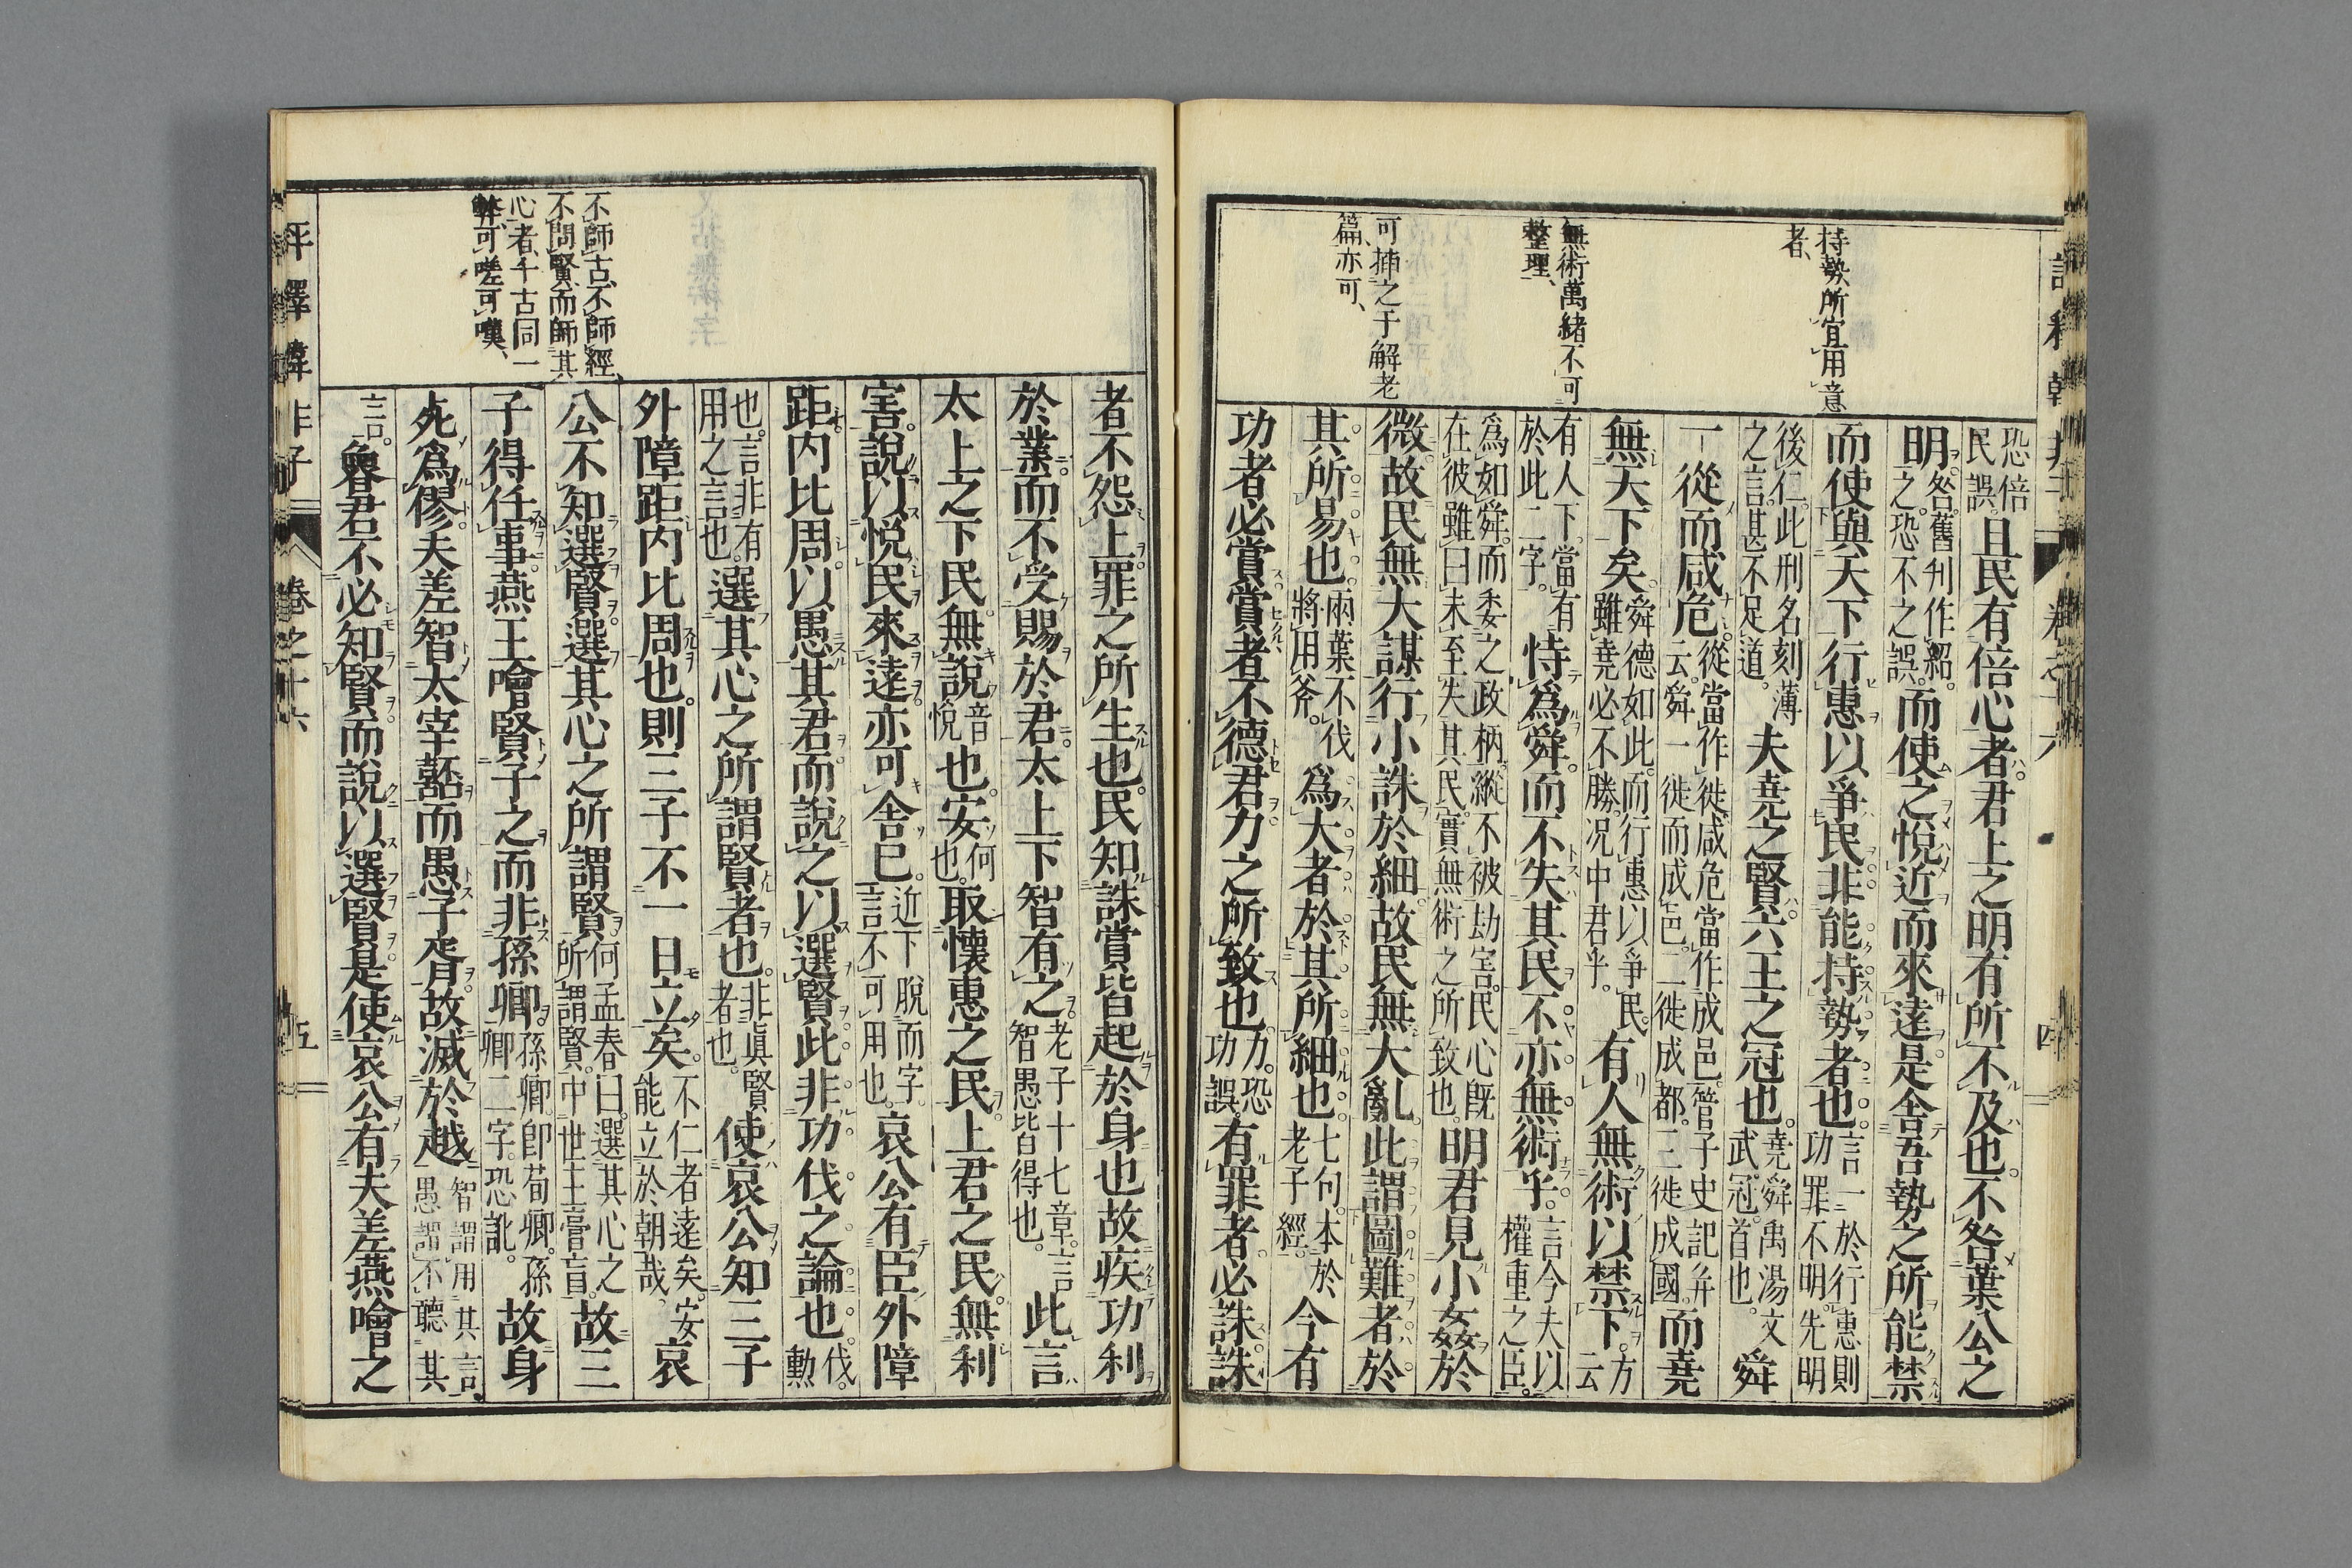 評釋韓非子 卷之十六 四
持勢所宜用意
者、
無術萬緒不可
整理、
可揷之于解老
篇亦可、
恐倍民誤。且民有倍心者。君上之明有所不及也。不咎葉公之
明。咎。舊刋作紹。之。恐不之誤。而使之悅近而來遠。是舍吾勢之所能禁
而使與天下行惠以爭民。非能持勢者也。言一於行惠則功罪不明。先明
後仁。此刑名刻薄之言。甚不足道。夫堯之賢。六王之冠也。堯舜禹湯文武。冠。首也。舜
一從而咸危。從當作徙。咸危當作成邑。管子史記并云。舜一徙而成邑。二徙成都。三徙成國。而堯
無天下矣。舜德如此。而行惠以爭民。雖堯必不勝。况中君乎。有人無術以禁下。方云
有人下。當有於此二字。恃爲舜。而不失其民。不亦無術乎。言今夫以權重之臣。
爲如舜。而委之政柄。縱不被劫害。民心旣在彼。雖曰未至失其民。實無術之所致也。明君見小姦於
微。故民無大謀。行小誅於細。故民無大亂。此謂圖難者於
其所易也。兩葉不伐。將用斧。爲大者於其所細也。七句。本於老子經。今有
功者必賞。賞者不德君。力之所致也。力。恐功誤。有罪者必誅。誅
不師古、不師經、
不問賢、而師其
心者、千古同一
弊、可嗟可嘆、
者不怨上。罪之所生也。民知誅賞皆起於身也。故疾功利
於業。而不受賜於君。太上下智有之。老子十七章。言智愚皆得也。此言
太上之下民無說音悅也。安何也。取懷惠之民。上君之民。無利
害。說以悅民來遠。亦可舍已。近下脫而字。言不可用也。哀公有臣外障
距。内比周。以愚其君。而說之以選賢。此非功伐之論也。伐。勳
也。言非有用之言也。選其心之所謂賢者也。非眞賢者也。使哀公知三子
外障距内比周也。則三子不一日立矣。不仁者遠矣。安能立於朝哉、哀
公不知選賢。選其心之所謂賢。何孟春曰。選其心之所謂賢。中世主膏肓。故三
子得任事。燕王噲賢子之。而非孫卿。孫卿。卽荀卿。孫卿二字。恐訛。故身
死爲僇。夫差智太宰嚭。而愚子胥。故滅於越。智謂用其言、愚謂不聽其
言。魯君不必知賢。而說以選賢。是使哀公有夫差燕噲之
評釋韓非子 卷之十六 五